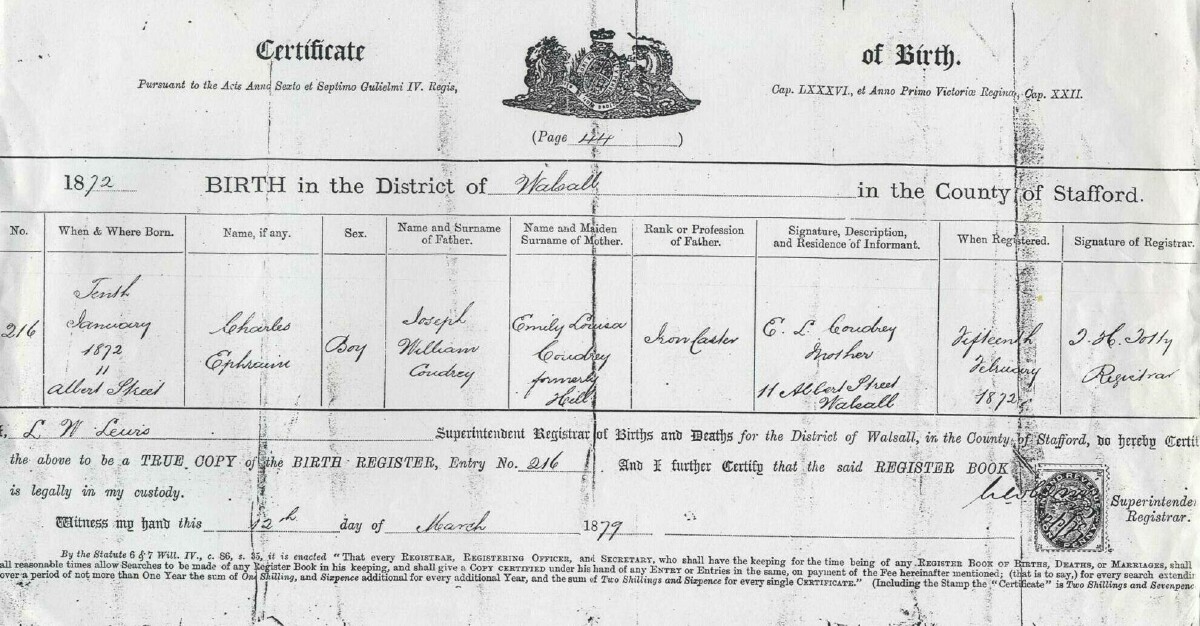 Certificate of Birth.
Pursuant to the Acts Anno Sexto et Septimo Gulielmi IV. Regis, Cap. LXXXVI., et Anno Primo Victoriæ Reginæ, Cap. XXII.
(Page 44)
1872 BIRTH in the District of Walsall in the County of Stafford.
No. When & Where Born. Name, if any. Sex. Name and Surname of Father. Name and Maiden Surname of Mother. Rank or Profession of Father. Signature, Description, and Residence of Informant. When Registered. Signature of Registrar.
216
Tenth
January
1872
11
Albert Street
Charles
Ephraim
Boy
Joseph
William
Coudrey
Emily Louisa
Coudrey
formerly
Hill
Iron Caster
E. L. Coudrey
Mother
11 Albert Street
Walsall
Fifteenth
February
1872
Registrar
L W Lewis Superintendent Registrar of Births and Deaths for the District of Walsall, in the County of Stafford, do hereby Certif
the above to be a TRUE COPY of the BIRTH REGISTER, Entry No. 216. And I further Certify that the said REGISTER BOOK
is legally in my custody.
Superintende
Registrar.
Witness my hand this 12th day of March 1879
By the Statute 6 & 7 Will. IV., c. 86, s. 35, it is enacted "That every REGISTRAR, REGISTERING OFFICER, and SECRETARY, who shall have the keeping for the time being of any REGISTER BOOK OF BIRTHS, DEATHS, OR MARRIAGES, shall
all reasonable times allow Searches to be made of any Register Book in his keeping, and shall give a COPY CERTIFIED under his hand of any ENTRY or Entries in the same, on payment of the Fee hereinafter mentioned; (that is to say,) for every search extendin
over a period of not more than One Year the sum of One Shilling, and Sixpence additional for every additional Year, and the sum of Two Shillings and Sixpence for every single CERTIFICATE." (Including the Stamp the "Certificate" is Two Shillings and Sevenpenc